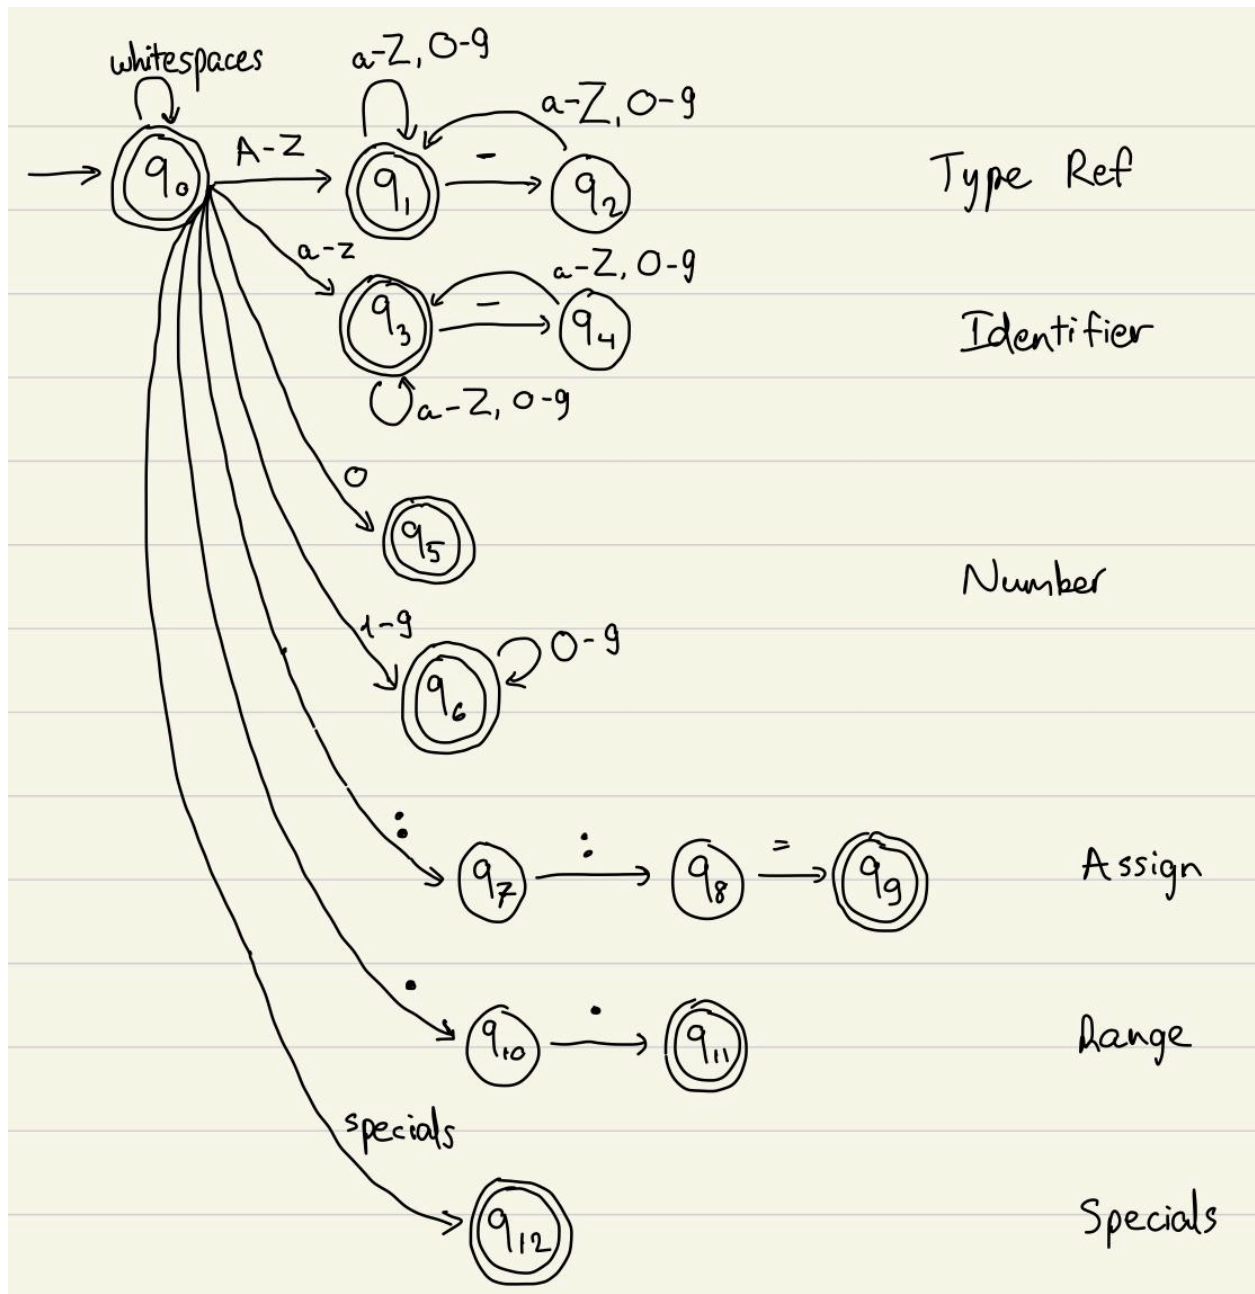 whitespaces
a-Z, 0-9
a-Z, 0-9
q0 A-Z q1 - q2 Type Ref
a-z
a-Z, 0-9
q3 - q4 Identifier
a-Z, 0-9
0
q5
Number
1-9 0-9
q6
: : =
q7 q8 q9 Assign
. .
q10 q11 Range
specials
q12 Specials